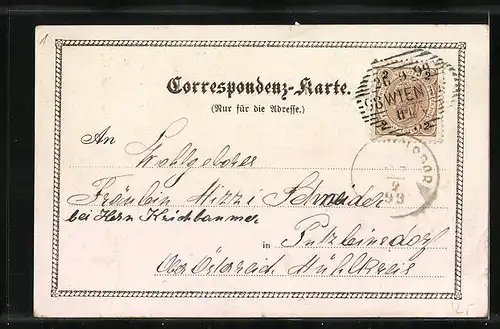 1
Correspondenz-Karte.
(Nur für die Adresse.)
26.9.99
WIEN
An
Wohlgeboren
Fräulein Mizzi Schneider
bei Herrn Kirchbaumer
in Putzleinsdorf
Oberösterreich Mühlkreis
9
99